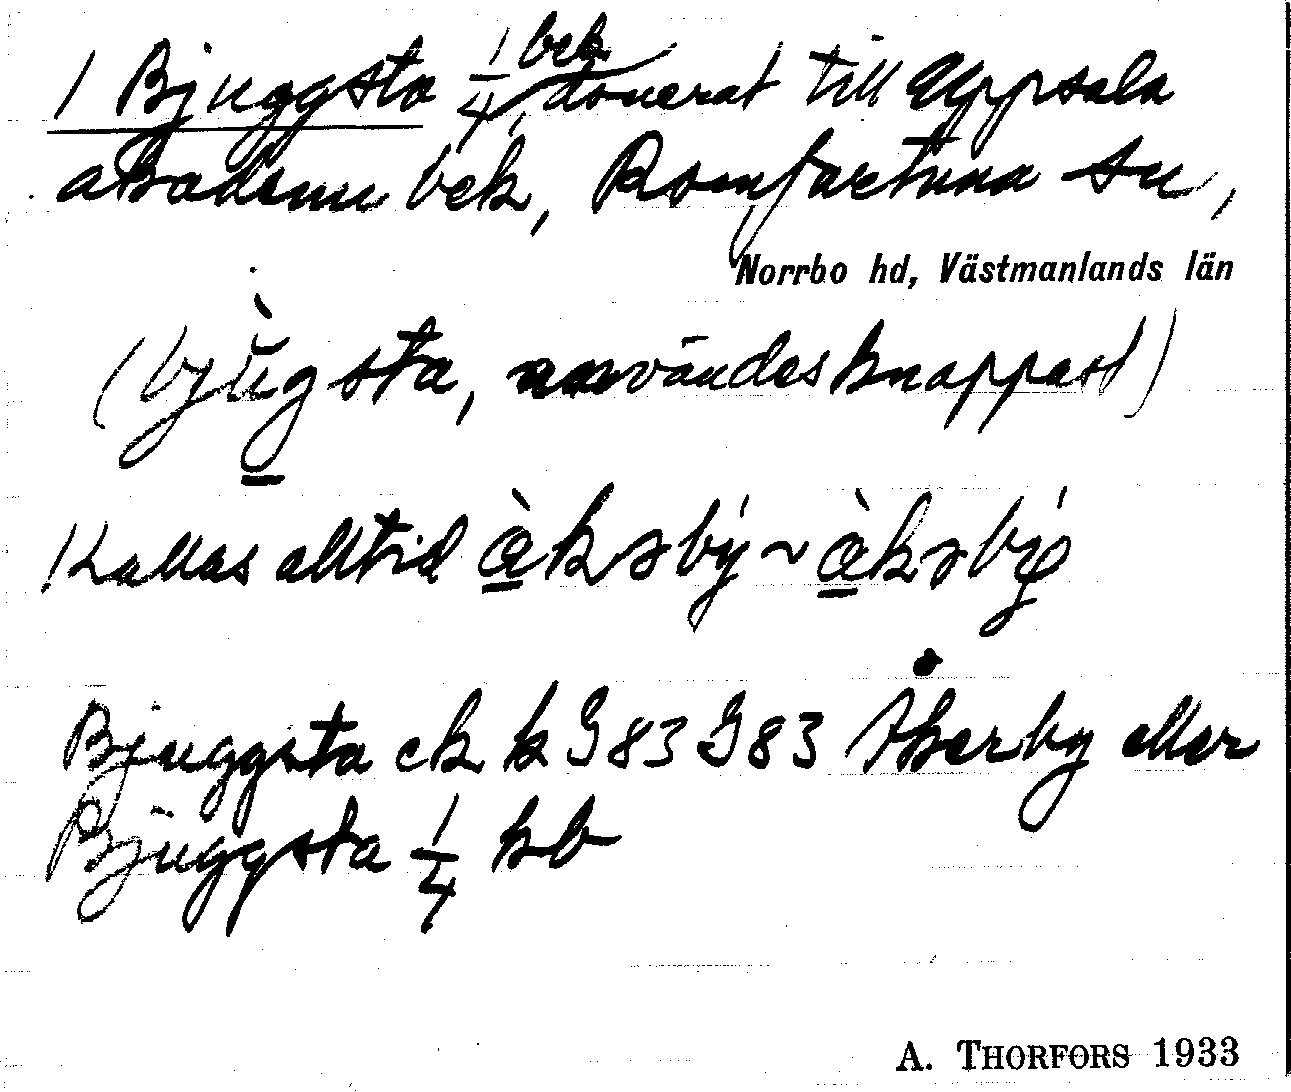 1 Bjuggsta 1/4 bek donerat till Uppsala
akademi bek, Romfartuna sn,
Norrbo hd, Västmanlands län
(bjùgsta, användes knappast)
Kallas alltid àksbý ~ àksbý
Bjuggsta ek k G83 J83 Åkerby eller
Bjuggsta 1/4 kb
A. THORFORS 1933